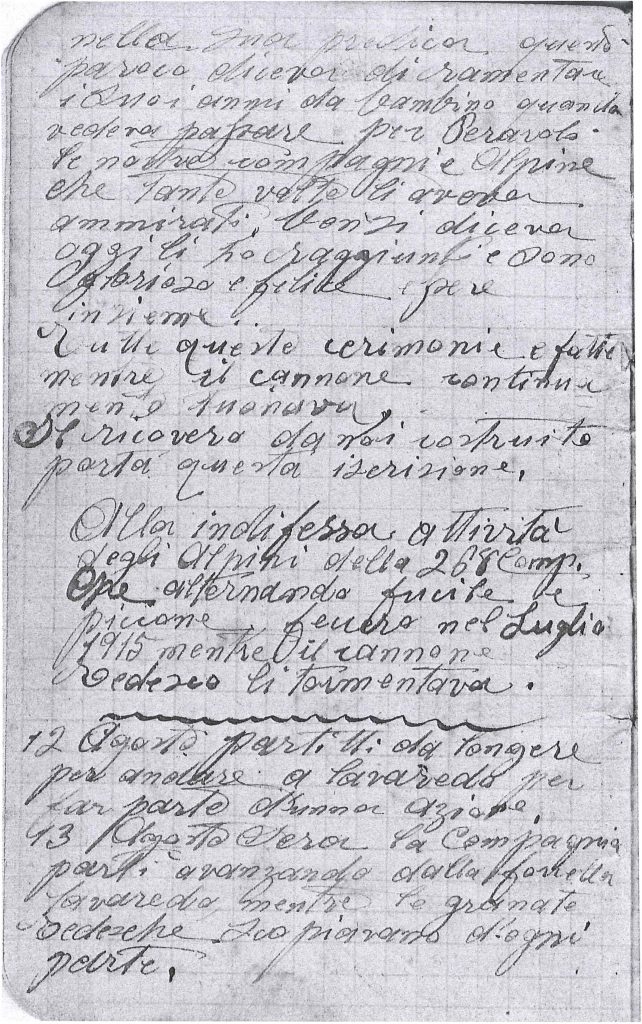 nella sua predica questo
paroco diceva di ramentare
i suoi anni da bambino quando
vedeva passare per Perarolo
le nostre compagnie Alpine
che tante volte li aveva
ammirati,  diceva
oggi li ho raggiunti e sono
glorioso e felice
insieme.
Tutte queste cerimonie e fatte
mentre il cannone continua
mente tuonava,
Il ricovero da noi costruito
porta questa iscrisione,
Alla indifessa attività
degli Alpini della 268 Comp.
Che alternando fucile e
piccone fecero nel Luglio
1915 mentre il cannone
Tedesco li tormentava.
12 Agosto partitti da Longere
per andare a Lavaredo per
far parte d'unna azione
13 Agosto Sera la Compagnia
parti avanzando dalla forcella
Lavaredo, mentre le granate
Tedesche scopiavano d'ogni
parte,